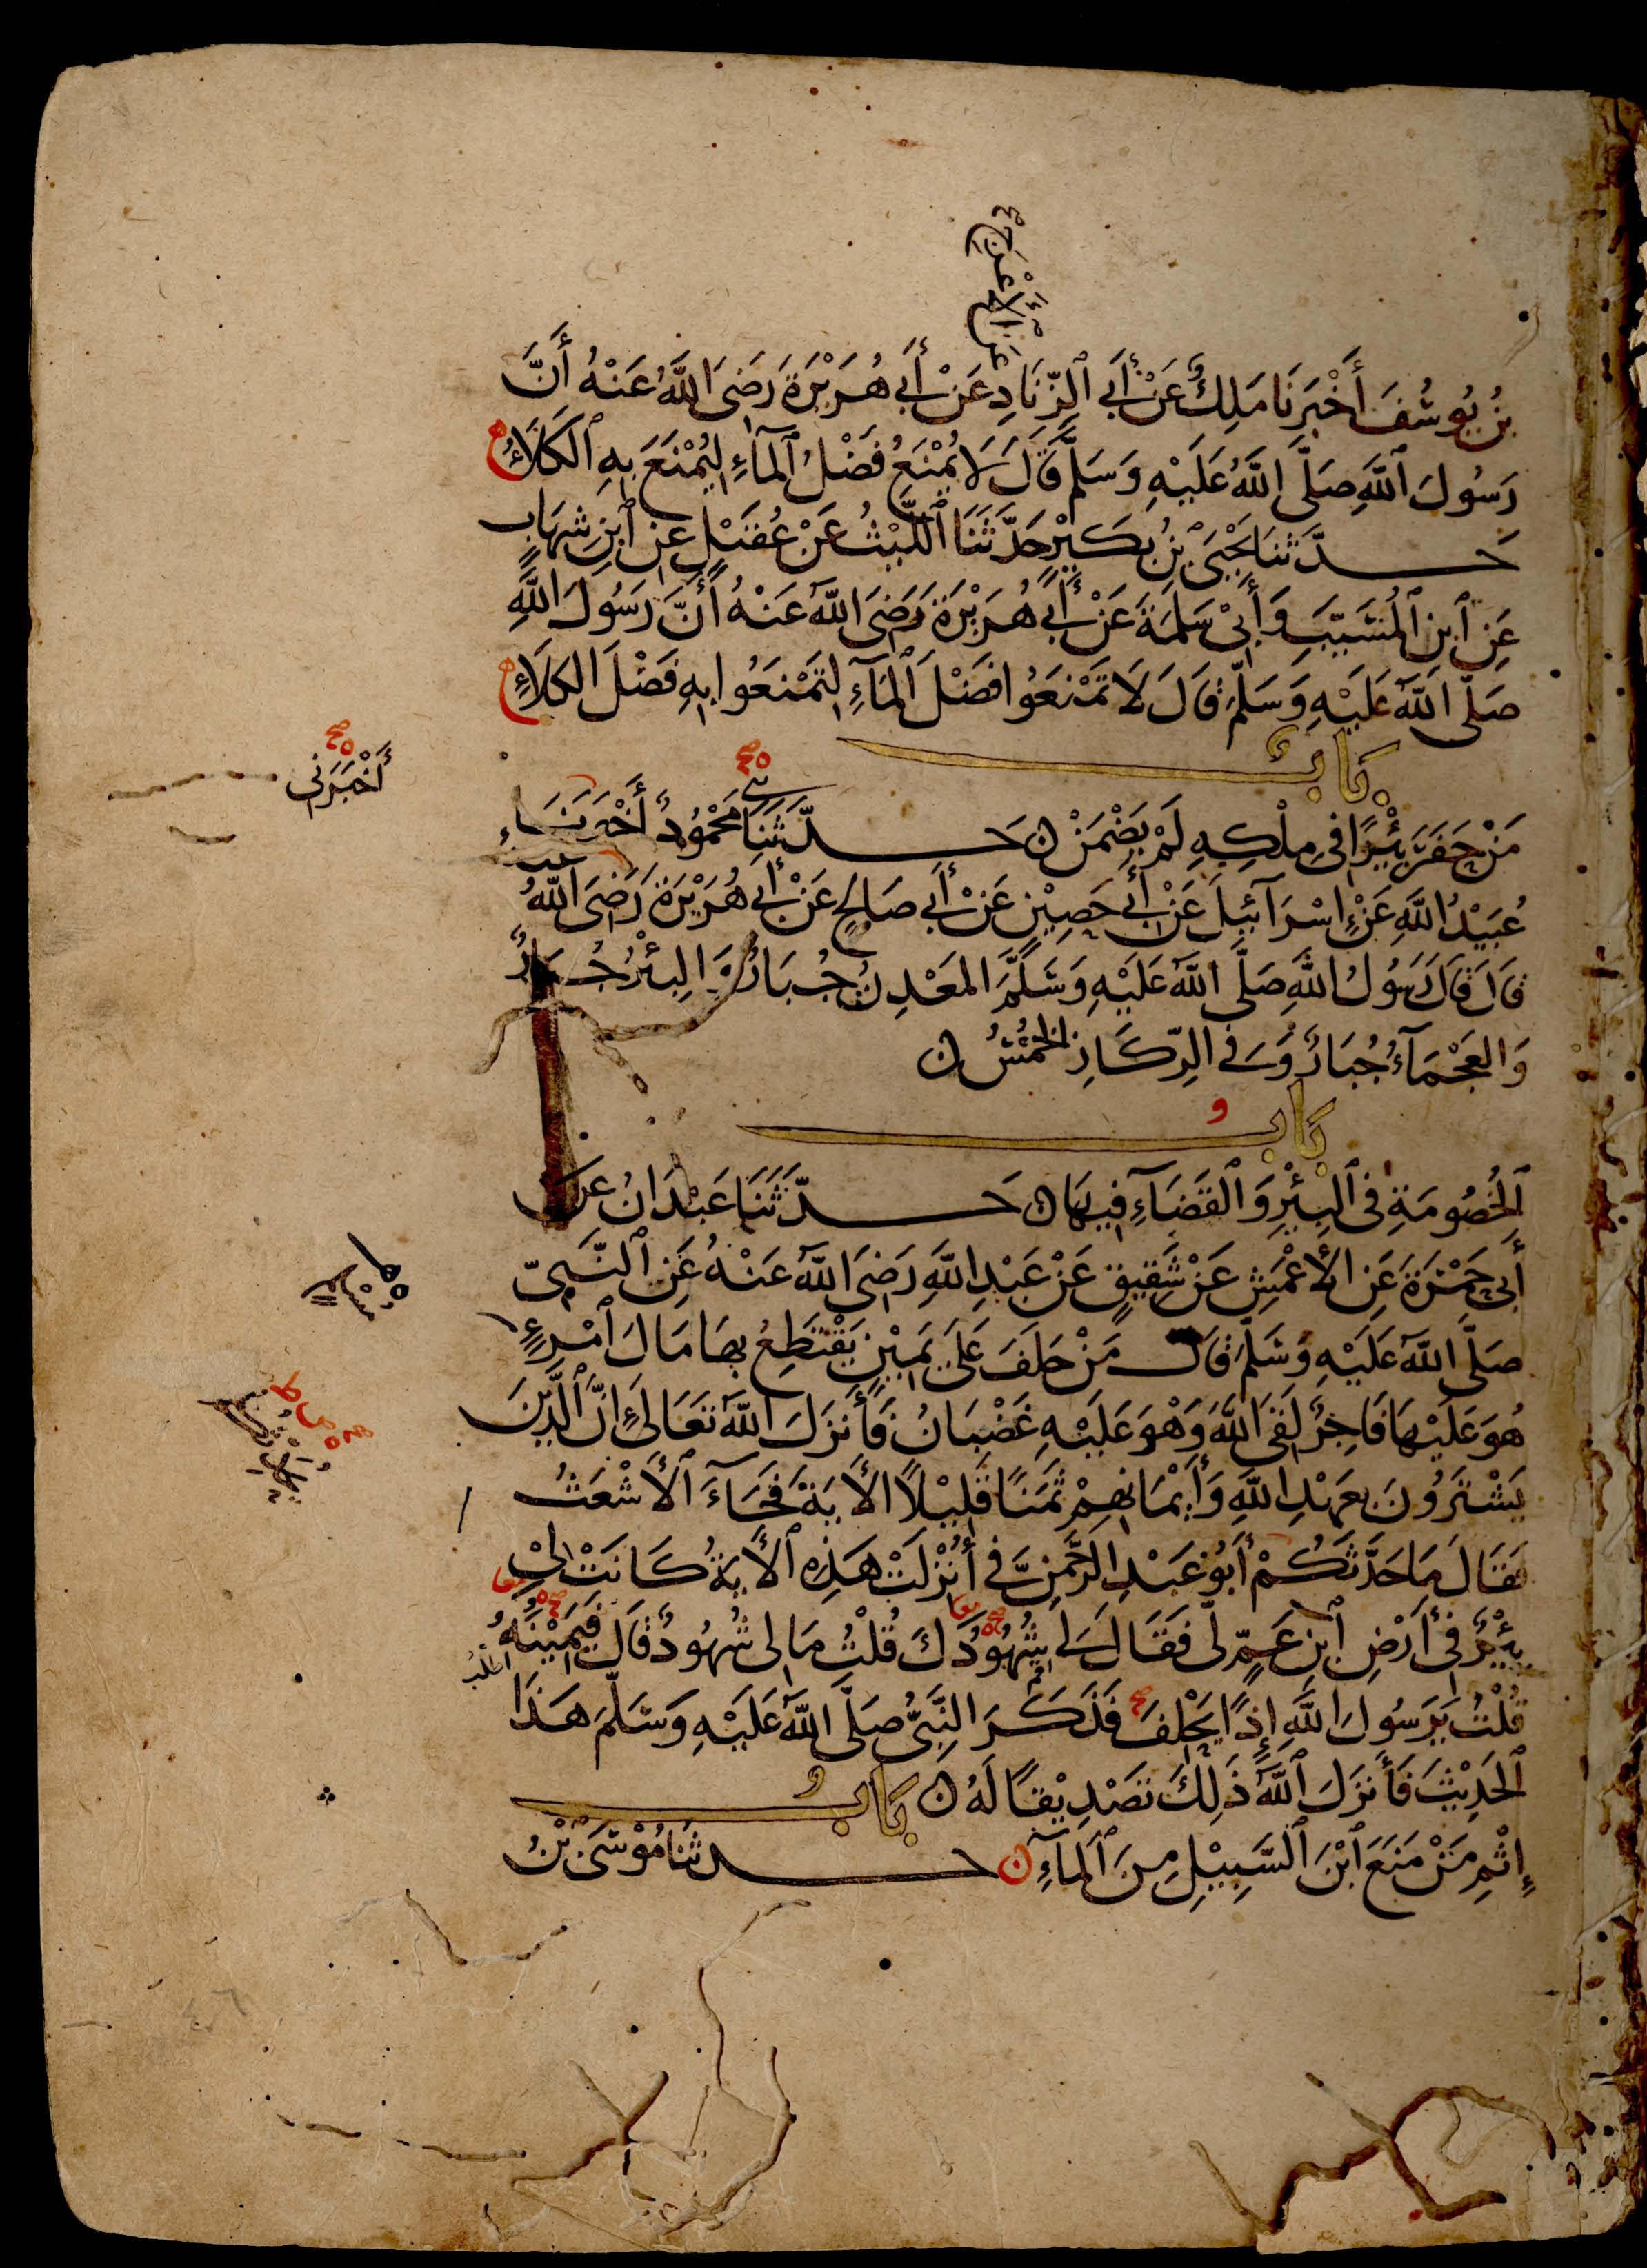 عَنِ الأَعْرَجِ
بْنُ يُوسُفَ أَخْبَرَنَا مَلِكٌ عَنْ أَبِي الزِّنَادِ عَنْ أَبِي هُرَيْرَةَ رَضِيَ اللَّهُ عَنْهُ أَنَّ
رَسُولَ اللَّهِ صَلَّى اللَّهُ عَلَيْهِ وَسَلَّمَ قَالَ لَا يُمْنَعُ فَضْلُ الْمَآءِ لِيُمْنَعَ بِهِ الْكَلَأُ
حَدَّثَنَا يَحْيَى بْنُ بُكَيْرٍ حَدَّثَنَا اللَّيْثُ عَنْ عُقَيْلٍ عَنِ ابْنِ شِهَابٍ
عَنِ ابْنِ الْمُسَيَّبِ وَأَبِي سَلَمَةَ عَنْ أَبِي هُرَيْرَةَ رَضِيَ اللَّهُ عَنْهُ أَنَّ رَسُولَ اللَّهِ
صَلَّى اللَّهُ عَلَيْهِ وَسَلَّمَ قَالَ لَا تَمْنَعُوا فَضْلَ الْمَآءِ لِتَمْنَعُوا بِهِ فَضْلَ الْكَلَأِ
بَابُ
أَخْبَرَنِي
مَنْ حَفَرَ بِئْرًا فِي مِلْكِهِ لَمْ يَضْمَنْ حَدَّثَنَا مَحْمُودٌ أَخْبَرَنَا
عُبَيْدُ اللَّهِ عَنْ إِسْرَآئِيلَ عَنْ أَبِي حَصِينٍ عَنْ أَبِي صَالِحٍ عَنْ أَبِي هُرَيْرَةَ رَضِيَ اللَّهُ عَنْهُ
قَالَ قَالَ رَسُولُ اللَّهِ صَلَّى اللَّهُ عَلَيْهِ وَسَلَّمَ الْمَعْدِنُ جُبَارٌ وَالْبِئْرُ جُبَارٌ
وَالْعَجْمَآءُ جُبَارٌ وَفِي الرِّكَازِ الْخُمُسُ
بَابُ
الْخُصُومَةِ فِي الْبِئْرِ وَالْقَضَآءِ فِيهَا حَدَّثَنَا عَبْدَانُ عَنْ
أَبِي حَمْزَةَ عَنِ الْأَعْمَشِ عَنْ شَقِيقٍ عَنْ عَبْدِ اللَّهِ رَضِيَ اللَّهُ عَنْهُ عَنِ النَّبِيِّ
صَلَّى اللَّهُ عَلَيْهِ وَسَلَّمَ قَالَ مَنْ حَلَفَ عَلَى يَمِيْنٍ يَقْتَطِعُ بِهَا مَالَ امْرِءٍ
هُوَ عَلَيْهَا فَاجِرٌ لَقِيَ اللَّهَ وَهُوَ عَلَيْهِ غَضْبَانُ فَأَنْزَلَ اللَّهُ تَعَالَى إِنَّ الَّذِينَ
يَشْتَرُونَ بِعَهْدِ اللَّهِ وَأَيْمَانِهِمْ ثَمَنًا قَلِيْلًا الْأَيَةَ فَجَآءَ الْأَشْعَثُ
فَقَالَ مَا حَدَّثَكُمْ أَبُو عَبْدِ الرَّحْمَنِ فِيَّ أُنْزِلَتْ هَذِهِ الْأَيَةُ كَانَتْ لِيْ
بِئْرٌ فِي أَرْضِ ابْنِ عَمٍّ لِي فَقَالَ لِي شُهُودَكَ قُلْتُ مَا لِي شُهُودٌ قَالَ فَيَمِيْنُهُ
قُلْتُ يَرَسُولَ اللَّهِ إِذًا يَحْلِفَ فَذَكَرَ النَّبِيُّ صَلَّى اللَّهُ عَلَيْهِ وَسَلَّمَ هَذَا
الْحَدِيْثَ فَأَنْزَلَ اللَّهُ ذَلِكَ تَصْدِيْقًا لَهُ بَابُ
إِثْمِ مَنْ مَنَعَ ابْنَ السَّبِيْلِ مِنَ الْمَآءِ حَدَّثَنَا مُوْسَى بْنُ